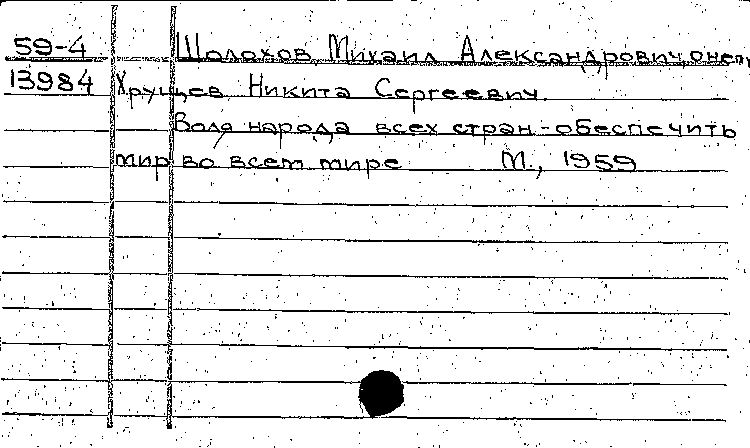 59-4 Шолохов, Михаил Александрович, о нем,
13984 Хрущев Никита Сергеевич.
Воля народа всех стран-обеспечить
мир во всем мире М., 1959